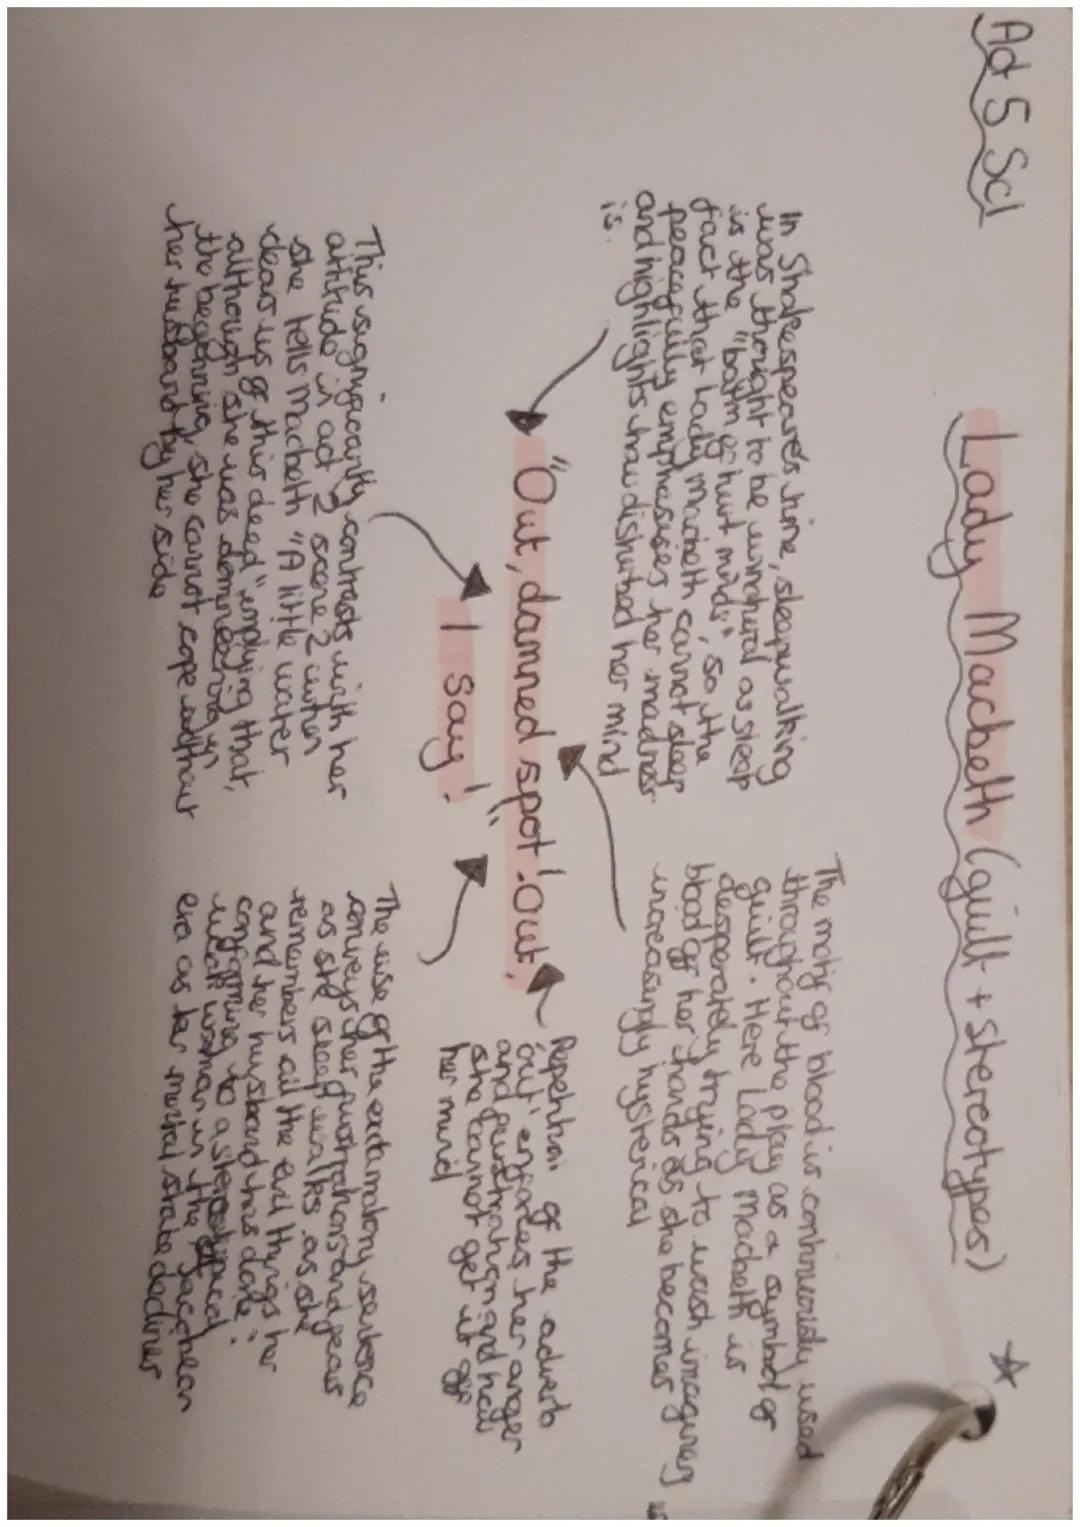 Act 5 Sc1
Lady Macbeth (guilt + stereotypes)
In Shakespeare's time, sleepwalking
was thought to be unnatural as sleep
is the "balm of hurt minds", so the
fact that Lady Macbeth cannot sleep
peacefully emphasises her madness
and highlights how disturbed her mind
is.
The motif of blood is continuously used
throughout the play as a symbol of
guilt. Here Lady Macbeth is
desperately trying to wash imaginary
blood off her hands as she becomes
increasingly hysterical
"Out, damned spot! Out,
I say!"
Repetition of the adverb
'out' enforces her anger
and frustration and how
she cannot get it off
her mind
This significantly contrasts with her
attitude in act 2 scene 2 when
she tells Macbeth "A little water
clears us of this deed" implying that,
although she was domineering in
the beginning, she cannot cope without
her husband by her side
The use of the exclamatory sentence
conveys her frustrations and fears
as she sleep walks as she
remembers all the evil things her
and her husband has done.
conforming to a stereotypical
weak woman in the Jacobean
era as her mental state declines